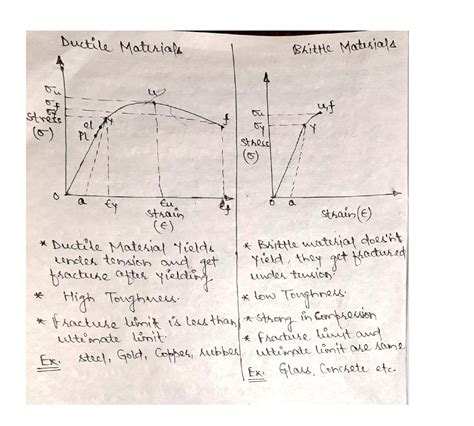 Ductile Materials
σu
σf
σy
Stress
(σ)
u
y
el
Pl
f
O
a
εy
εu
εf
Strain
(ε)
* Ductile Material Yields
under tension and get
fracture after yielding.
* High Toughness.
* fracture limit is less than
ultimate limit.
Ex. steel, Gold, Copper, rubber
Brittle Materials
σu
σy
Stress
(σ)
u,f
y
O
a
Strain (ε)
* Brittle material does'nt
Yield, they get fractured
under tension.
* low Toughness.
* Strong in Compression
* fracture limit and
ultimate limit are same
Ex. Glass, Concrete etc.